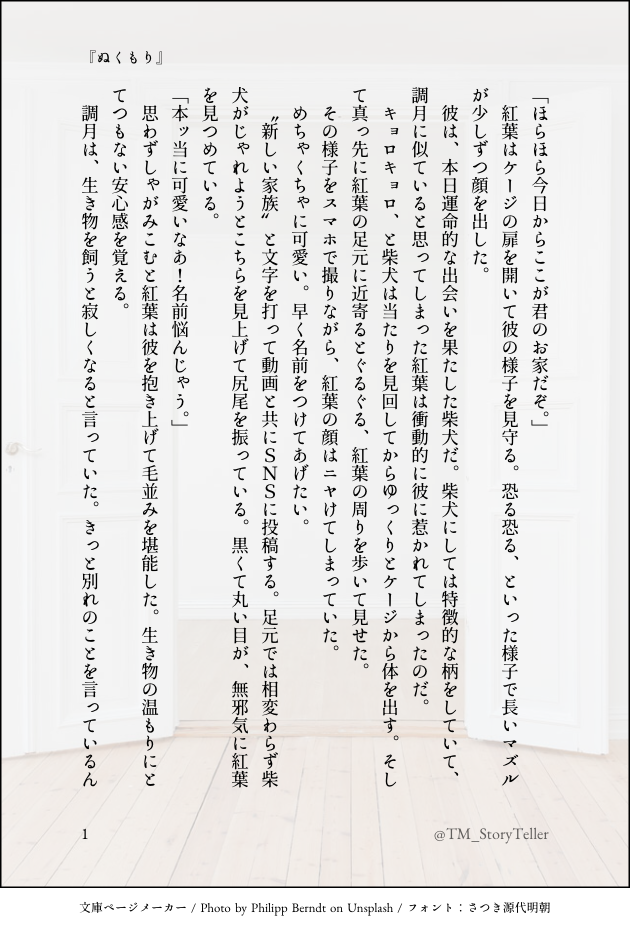 『ぬくもり』
「ほらほら今日からここが君のお家だぞ。」
　紅葉はケージの扉を開いて彼の様子を見守る。恐る恐る、といった様子で長いマズル
が少しずつ顔を出した。
　彼は、本日運命的な出会いを果たした柴犬だ。柴犬にしては特徴的な柄をしていて、
調月に似ていると思ってしまった紅葉は衝動的に彼に惹かれてしまったのだ。
　キョロキョロ、と柴犬は当たりを見回してからゆっくりとケージから体を出す。そし
て真っ先に紅葉の足元に近寄るとぐるぐる、紅葉の周りを歩いて見せた。
　その様子をスマホで撮りながら、紅葉の顔はニヤけてしまっていた。
　めちゃくちゃに可愛い。早く名前をつけてあげたい。
　〝新しい家族〟と文字を打って動画と共にＳＮＳに投稿する。足元では相変わらず柴
犬がじゃれようとこちらを見上げて尻尾を振っている。黒くて丸い目が、無邪気に紅葉
を見つめている。
「本ッ当に可愛いなあ！名前悩んじゃう。」
　思わずしゃがみこむと紅葉は彼を抱き上げて毛並みを堪能した。生き物の温もりにと
てつもない安心感を覚える。
　調月は、生き物を飼うと寂しくなると言っていた。きっと別れのことを言っているん
1
@TM_StoryTeller
文庫ページメーカー / Photo by Philipp Berndt on Unsplash / フォント：さつき源代明朝